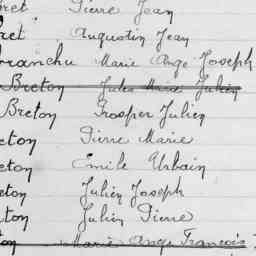 ret Pierre Jean
ret Augustin Jean
branchu Marie Ange Joseph
Breton Jules Marie Julien
Breton Prosper Julien
eton Pierre Marie
eton Emile Urbain
eton Julien Joseph
ton Julien Pierre
ton Marie Ange François